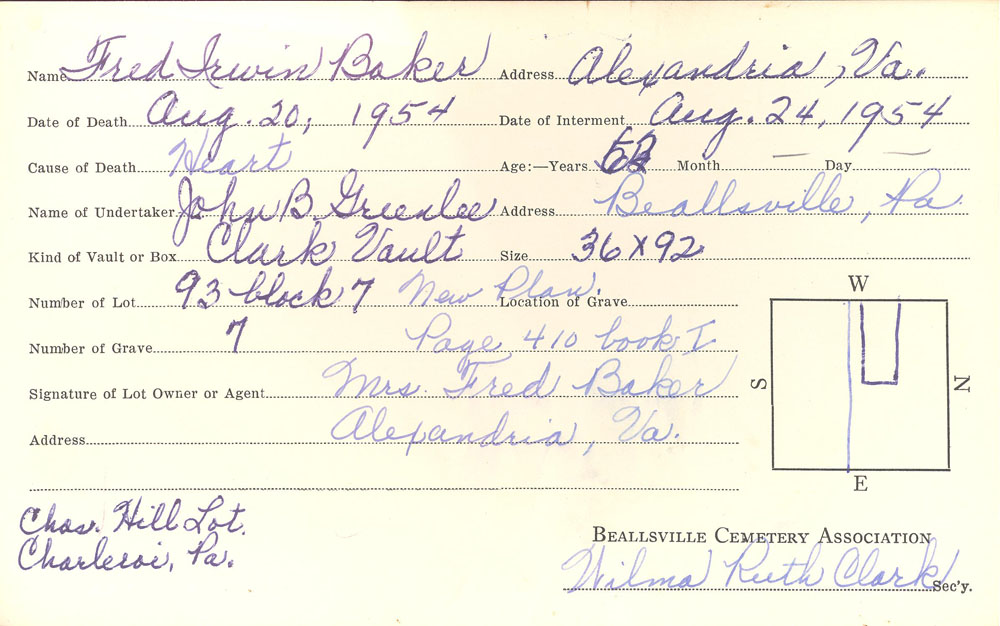 Name Fred Irwin Baker Address Alexandria, Va.
Date of Death Aug. 20, 1954 Date of Interment Aug. 24, 1954
Cause of Death Heart Age:—Years Month — Day —
Name of Undertaker John B. Greenlee Address Beallsville, Pa.
Kind of Vault or Box Clark Vault Size 36 x 92
Number of Lot 93 block 7 New Plan. Location of Grave
Number of Grave 7 Page 410 book I
Signature of Lot Owner or Agent Mrs. Fred Baker
Address Alexandria, Va.
W
S
N
E
Chas. Hill Lot.
Charleroi, Pa.
BEALLSVILLE CEMETERY ASSOCIATION
Wilma Ruth Clark Sec'y.